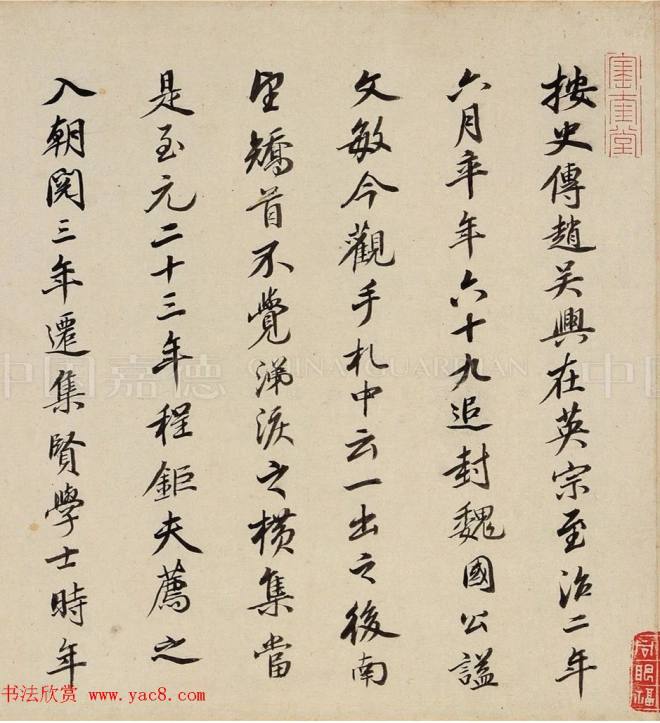 按史傳趙吴興在英宗至治二年
六月卒年六十九追封魏國公謚
文敏今觀手札中云一出之後南
望矯首不覺涕淚之橫集當
是至元二十三年程鉅夫薦之
入朝閱三年遷集賢學士時年
寶奎堂
眼福
中国嘉德 CHINA GUARDIAN 中国
书法欣赏 www.yac8.com